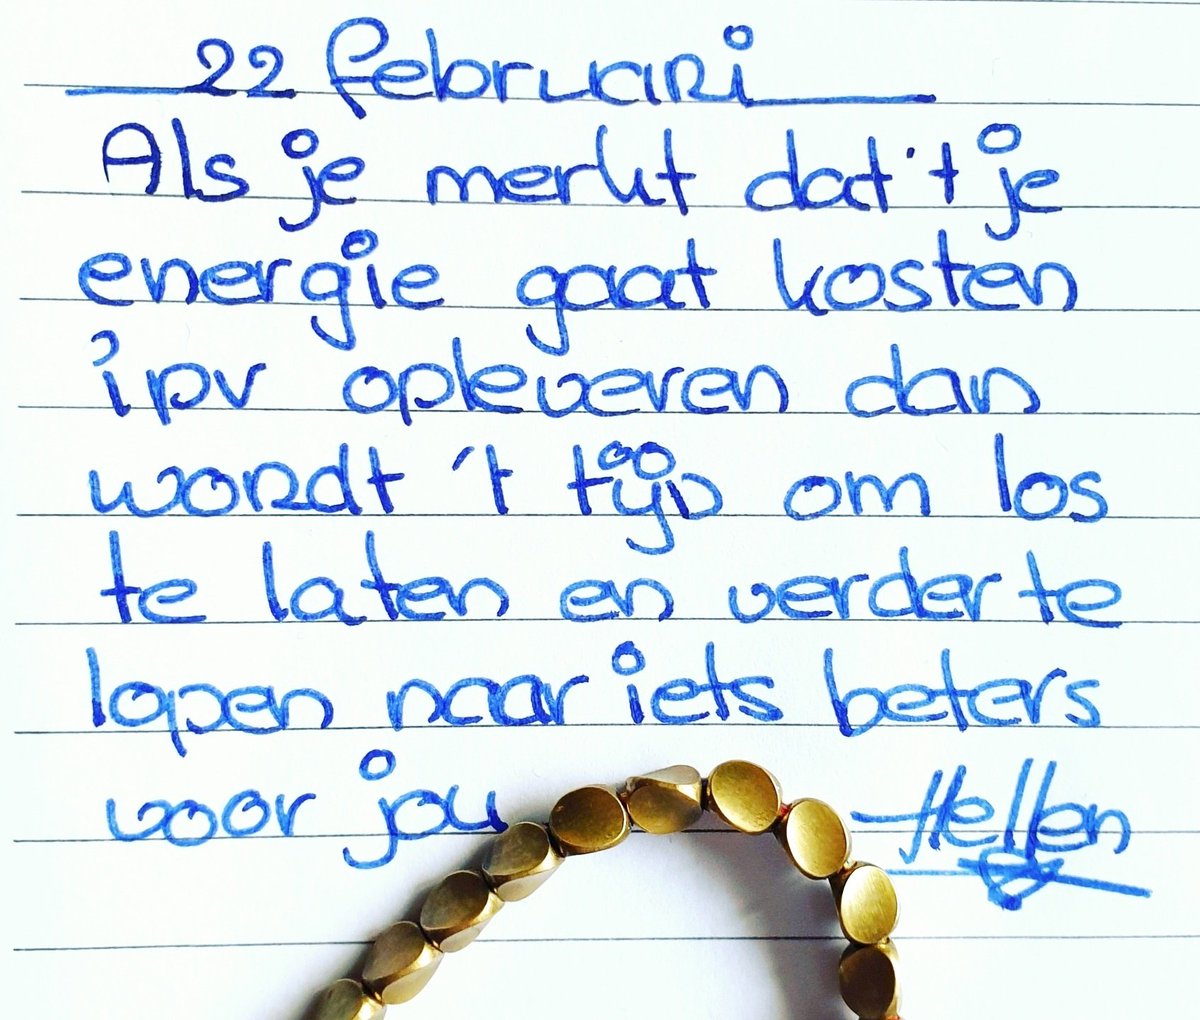 22 februari
Als je merkt dat 't je
energie gaat kosten
ipv opleveren dan
wordt 't tijd om los
te laten en verder te
lopen naar iets beters
voor jou Hellen